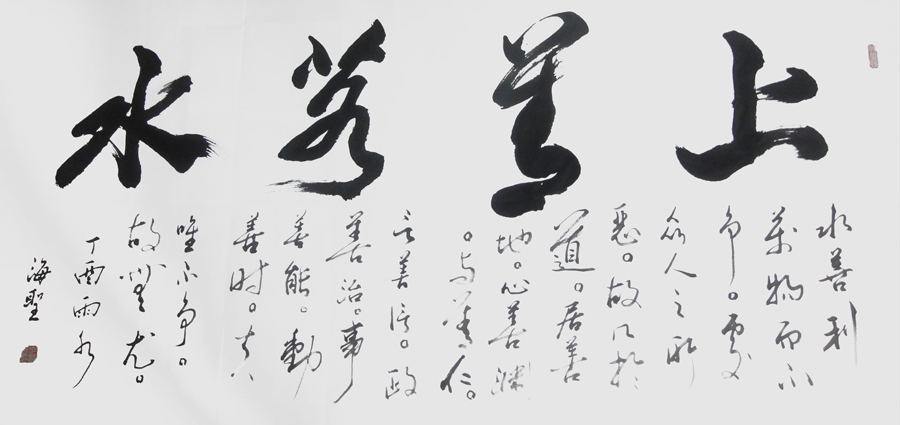 上善若水
水善利
萬物而不
争。處
衆人之所
惡。故几於
道。居善
地。心善渊
。与善仁。
言善信。政
善治。事
善能。動
善时。夫
唯不争。
故無尤。
丁酉雨水
海聖